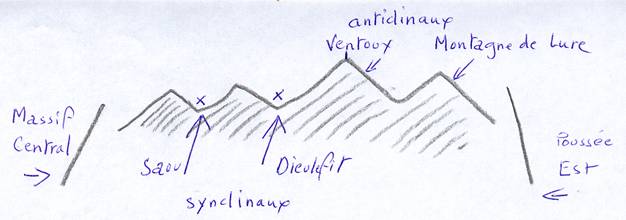 anticlinaux
Ventoux
Montagne de Lure
x
x
Massif
Central
Saou
Dieulefit
synclinaux
Poussée
Est